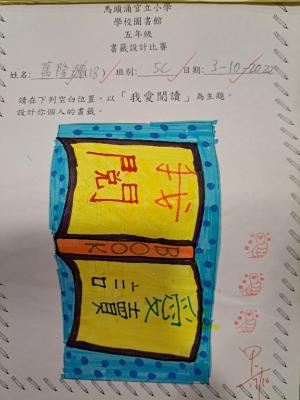 馬頭涌官立小學
學校圖書館
五年級
書籤設計比賽
姓名: 萬隆 (18) 班別: 5C 日期: 3-10-2022
請在下列空白位置，以「我愛閱讀」為主題，
設計你個人的書籤。
我
閱
BOOK
愛
讀